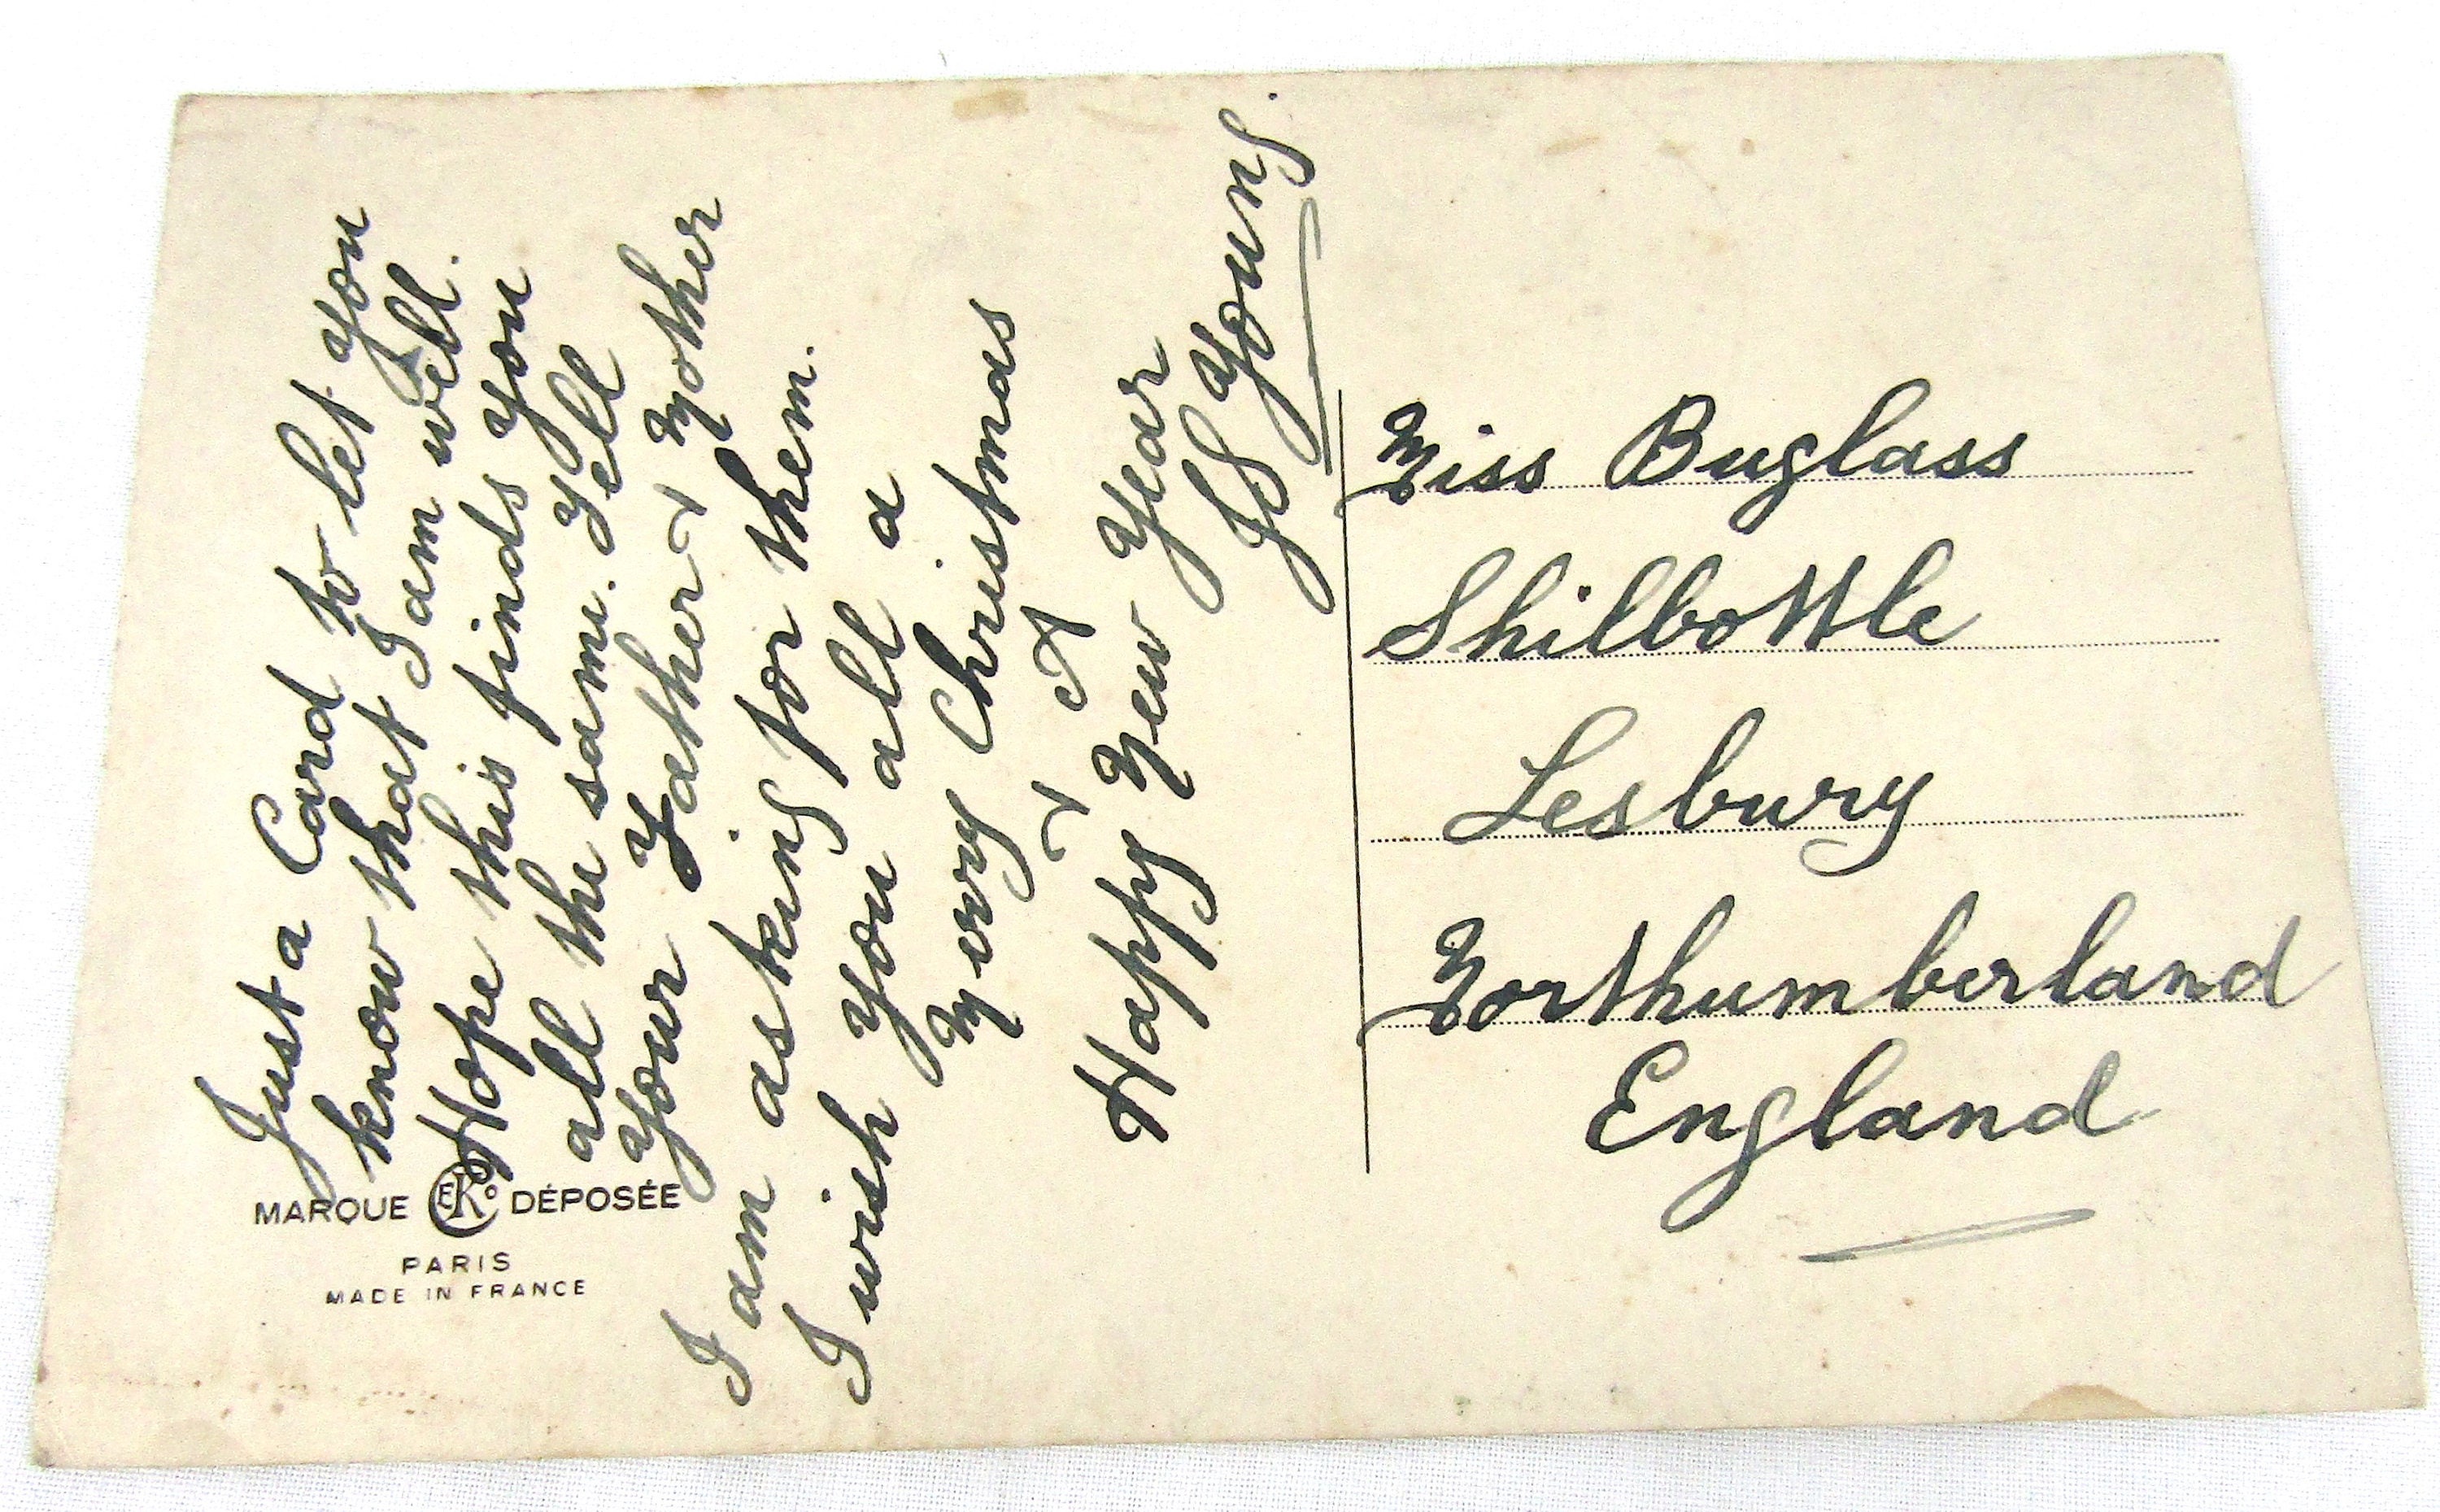 Just a Card to let you
know that I am well.
Hope this finds you
all the same. Tell
your Father & Mother
I am asking for them.
I wish you all a
Merry Christmas
& A
Happy New Year
Young.
Miss Buglass
Shilbottle
Lesbury
Northumberland
England
MARQUE EKo DÉPOSÉE
PARIS
MADE IN FRANCE